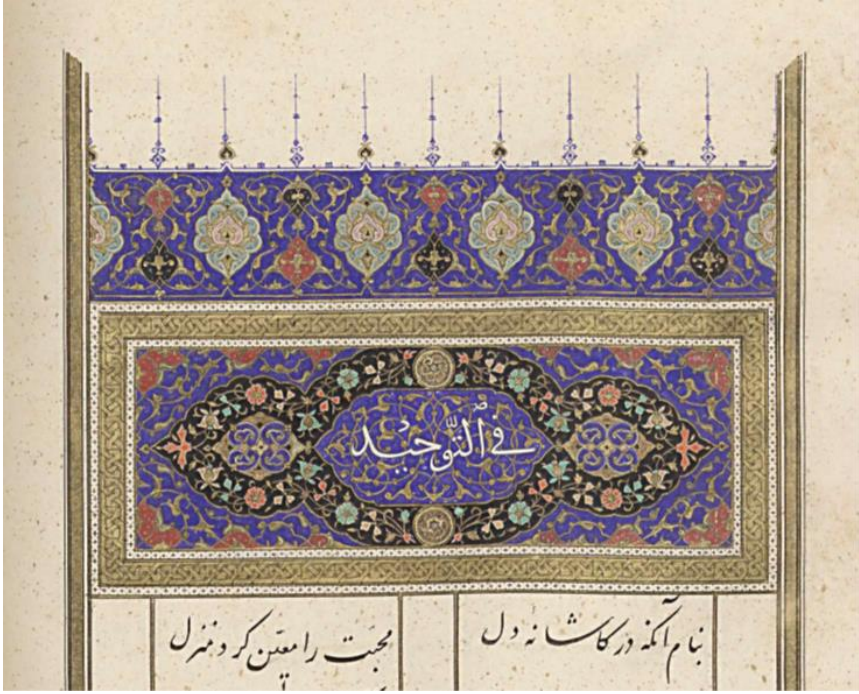 فی التّوحید
بنام آنکه در کاشانه دل
محبّت را معیّن کرد منزل